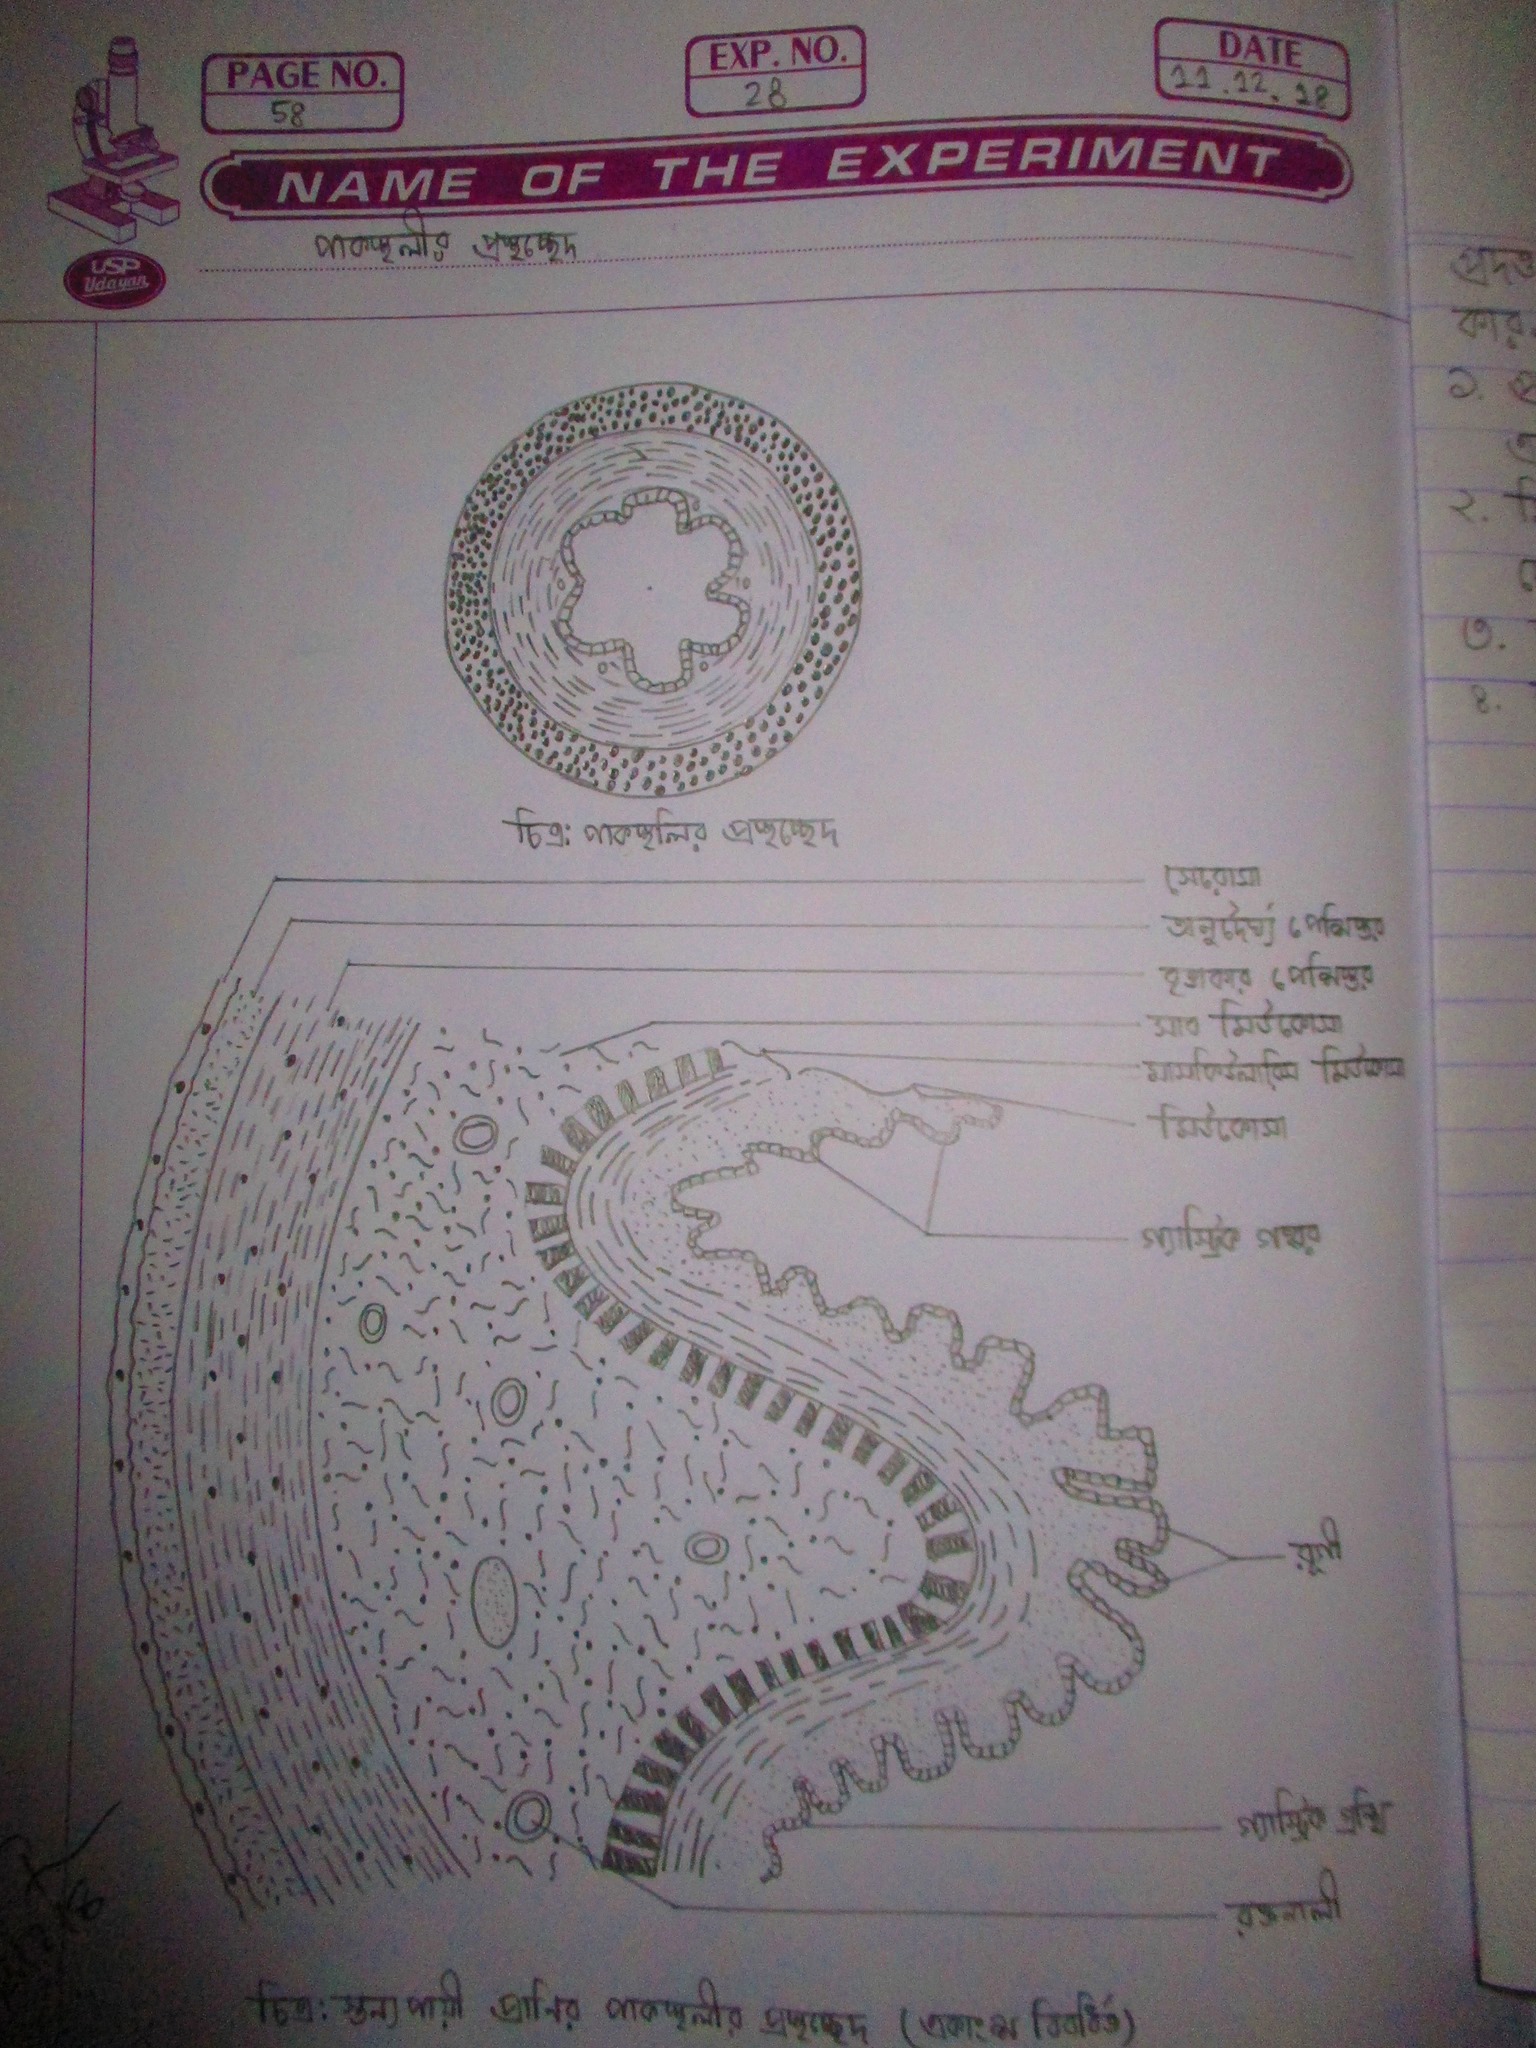 PAGE NO.
58
EXP. NO.
28
DATE
11.12.18
NAME OF THE EXPERIMENT
USP
Udayan
পাকস্থলীর প্রস্থচ্ছেদ
চিত্র: পাকস্থলির প্রস্থচ্ছেদ
সেরোসা
অনুদৈর্ঘ্য পেশিস্তর
বৃত্তাকার পেশিস্তর
সাব মিউকোসা
মাসকিউলারিস মিউকোসা
মিউকোসা
গ্যাস্ট্রিক গহ্বর
রুগী
গ্যাস্ট্রিক গ্রন্থি
রক্তনালী
চিত্র: স্তন্যপায়ী প্রানির পাকস্থলীর প্রস্থচ্ছেদ (একাংশ বিবর্ধিত)
প্রদত্ত
কার
১.
২.
৩.
৪.